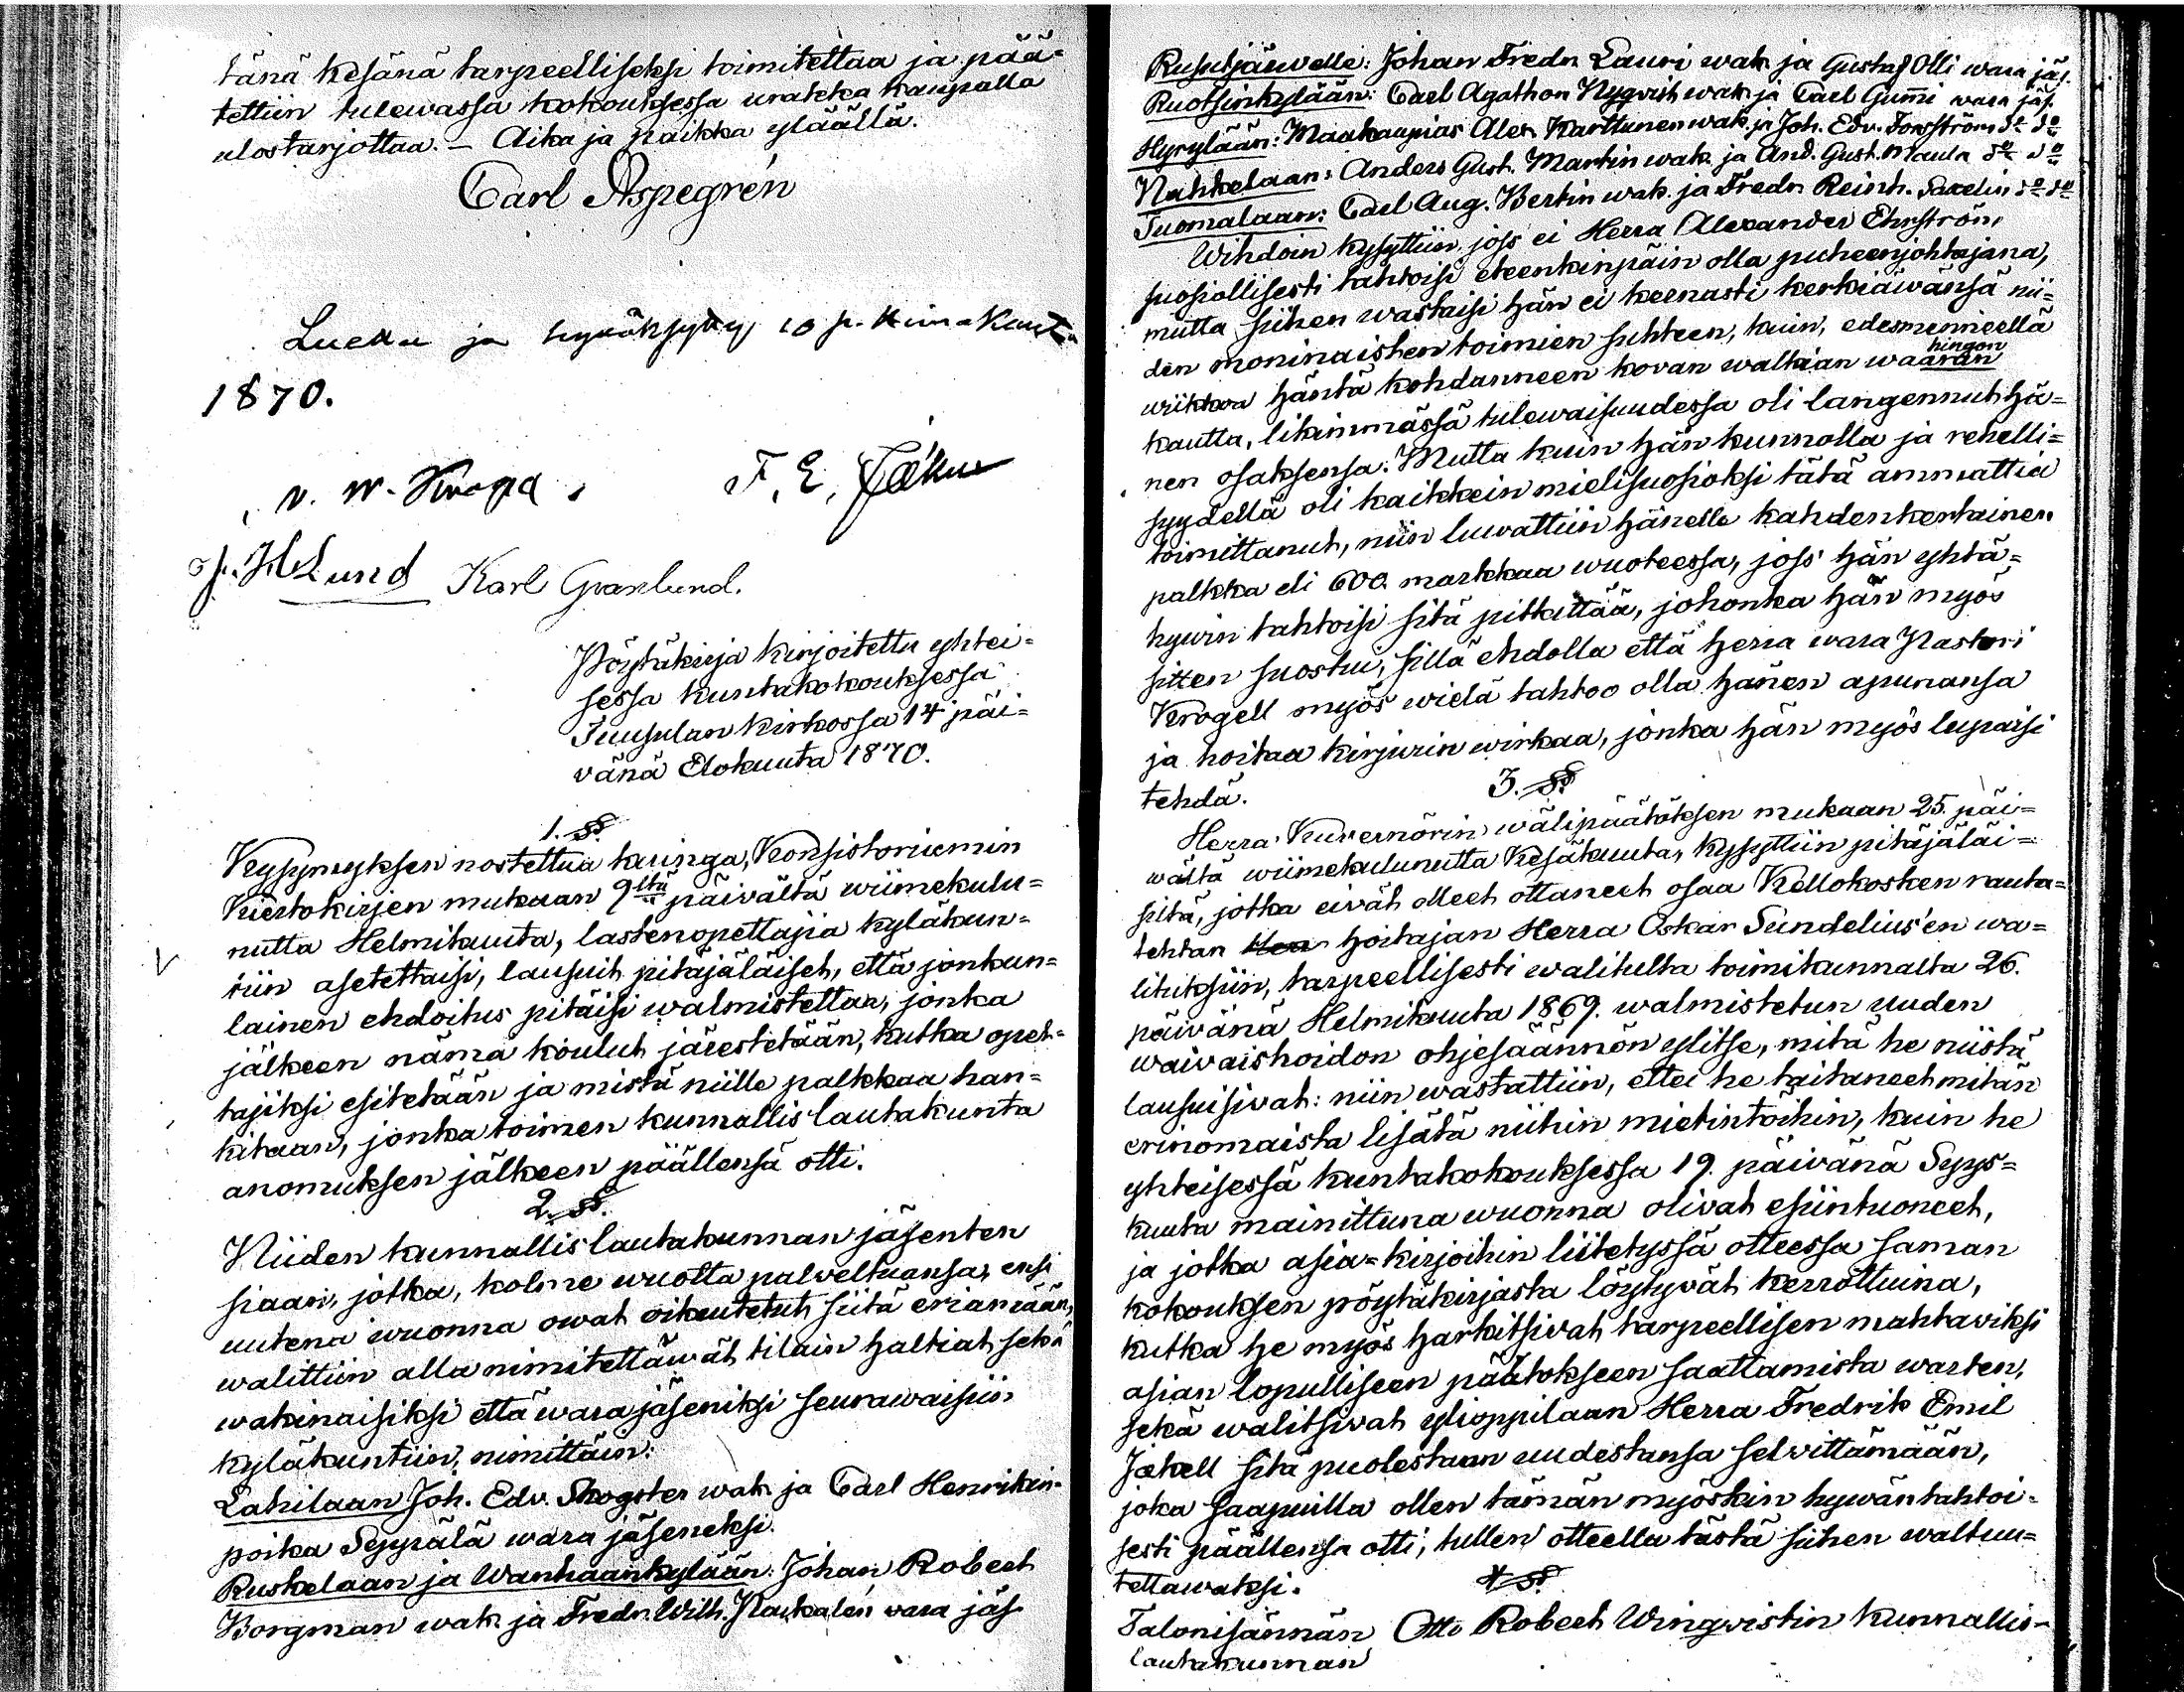 tänä kesänä tarpeelliseksi toimitettaa ja pää=
tettiin tulewassa kokouksessa urakka kaupalla
ulostarjottaa. – Aika ja paikka ylääällä.
Carl Aspegrén
Luettu ja hyväksytty 10 p.
1870.
F. E. Jækell
J. H Lund Karl Granlund.
Pöytäkirja kirjoitettu yhtei=
sessa kuntakokouksessa
Tuusulan kirkossa 14 päi=
vänä Elokuuta 1870.
1. §§.
Kysymyksen nostettua kuinga, Konsistoriumin
Kiertokirjen mukaan 9ltä päivältä wiimekulu=
nutta Helmikuuta, lastenopettajia kyläkun=
tiin asetettaisi, lausuit pitäjäläiset, että jonkun=
lainen ehdoitus pitäisi walmistettaa, jonka
jälkeen nämä koulut järestetään, kutka opet=
tajiksi esitetään ja mistä niille palkkaa han=
kitaan, jonka toimen kunnallis lautakunta
anomuksen jälkeen päällensä otti.
2. §§.
Niiden kunnallis lautakunnan jäsenten
siaan, jotka, kolme wuotta palveltuansa, ensi
uutena wuonna owat oikeutetut siitä eriämään,
walittiin alla nimitettäwät tilain haltiat sekä
wakinaisiksi että warajäseniksi seurawaisiin
kyläkuntiin, nimittäin:
Lahilaan Joh. Edv. Skogster wak ja Carl Henrikin=
poika Seppälä wara jäseneksi.
Ruskelaan ja Wanhaankylään: Johan Robert
Borgman wak. ja Fredr. Wilh. Paikalén wara jäs
Rusutjärwelle: Johan Fredr Lauri wak ja Gustaf Olli wara jäs.
Ruotsinkylään: Carl Agathon Nyqvist wak ja Carl Gum̄i wara jäs.
Hyrylään: Maakaupias Alex Karttunen wak. ja Joh. Edv. Forsström do do
Nahkelaan: Anders Gust. Martin wak ja And. Gust. Maula do do
Tuomalaan: Carl Aug. Bertin wak. ja Fredr Reinh. Saxelin do do
Wihdoin kysyttiin, joss ei Herra Alexander Ehnström
suosiollisesti tahtoisi eteenkinpäin olla puheenjohtajana,
mutta siihen wastaisi hän ei keenasti kerkiäwänsä nii=
den moninaisten toimien suhteen, kuin, edesmenneellä
wiikkoa häntä kohdanneen kovan walkian waaran
hingon
kautta, likimmässä tulewaisuudessa oli langennut hä=
nen osaksensa. Mutta kuin hän kunnolla ja rehelli=
syydellä oli kaikkein mielisuosioksi tätä ammattia
toimittanut, niin luwattiin hänelle kahdenkertainen
palkka eli 600 markkaa wuoteessa, joss hän yhtä=
hywin tahtoisi sitä pitkittää, johonka hän myös
sitten suostui, sillä ehdolla että herra wara Pastori
Krogell myös wielä tahtoo olla hänen apunansa
ja hoitaa kirjurin wirkaa, jonka hän myös lupaisi
tehdä.
3. §§.
Herra Kuvernörin wälipäätöksen mukaan 25. päi=
wältä wiimekulunutta Kesäkuuta, kysyttiin pitäjäläi=
siltä, jotka eivät olleet ottaneet osaa Kellokosken rauta=
tehtan hoitajan Herra Oskar Sundelius'en wa=
lituksiin, tarpeellisesti walitulta toimikunnalta 26.
päivänä Helmikuuta 1869. walmistetun uuden
waivaishoidon ohjesäännön ylitse, mitä he niistä
lausuisivat: niin wastattiin, ettei he taitaneet mitän
erinomaista lisätä niihin mietintöihin, kuin he
yhteisessä kuntakokouksessa 19. päivänä Syys=
kuuta mainittuna wuonna olivat esiintuoneet,
ja jotka asia=kirjoihin liitetyssä otteessa saman
kokouksen pöytäkirjasta löytyvät kerrottuina,
kutka he myös harkitsivat tarpeellisen mahtaviksi
asian lopulliseen päätökseen saattamista warten,
sekä walitsivat ylioppilaan Herra Fredrik Emil
Jækell sitä puolestaan uudestansa selvittämään,
joka saapuilla ollen tämän myöskin hywäntahtoi=
sesti päällensä otti, tullen otteella tästä siihen waltuu=
tettawaksi.
4 §§.
Talonisännän Otto Robert Wingvistin kunnallis=
lautakunnan